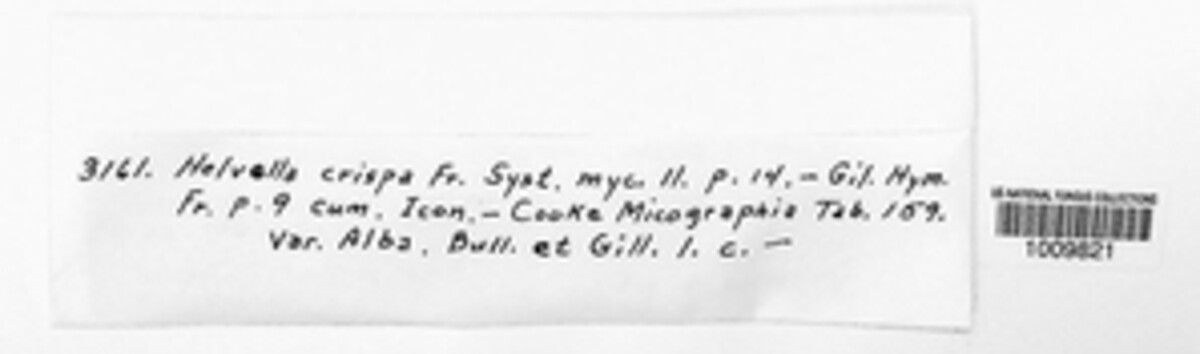 3161. Helvella crispa Fr. Syst. myc. II. p. 14. – Gil. Hym.
Fr. p. 9 cum. Icon. – Cooke Micographia Tab. 159.
Var. Alba. Bull. et Gill. l. c. –
US NATIONAL FUNGUS COLLECTIONS
1009821